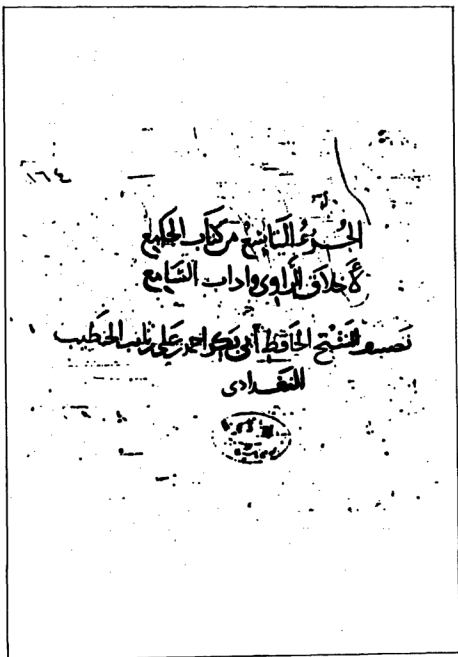 ١٦٤
الجزء التاسع من كتاب الجامع
لأخلاق الراوي واداب السامع
تصنيف الشيخ الحافظ أبي بكر احمد بن علي بن ثابت الخطيب
البغدادى